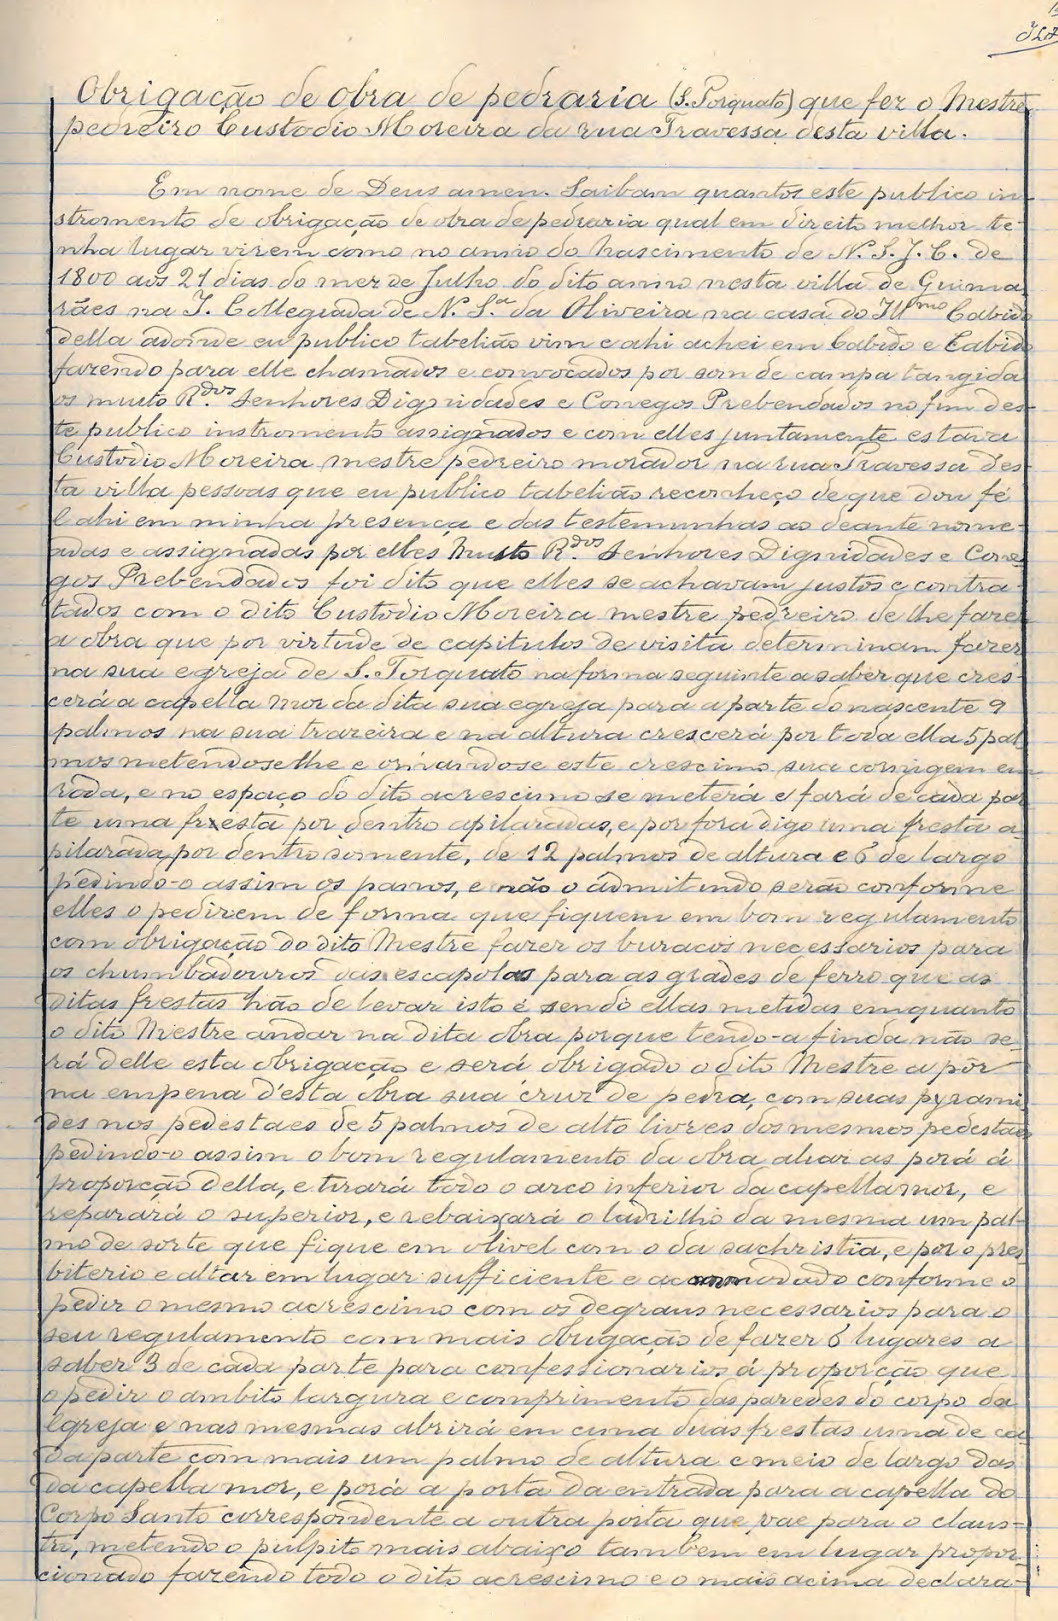 Obrigação de obra de pedraria (S. Torquato) que fez o Mestre
pedreiro Custodio Moreira da rua Travessa desta villa.
Em nome de Deus amen. Saibam quantos este publico in-
stromento de obrigação de obra de pedraria qual em direito melhor te-
nha lugar virem como no anno do Nascimento de N. S. J. C. de
1800 aos 21 dias do mez de Julho do dito anno nesta villa de Guima-
rães na I. Collegiada de N. S.ª da Oliveira na casa do Ill.mo Cabido
della adonde eu publico tabelião vim e ahi achei em Cabido e Cabido
fazendo para elle chamados e convocados por som de campa tangida
os muito R.dos Senhores Dignidades e Conegos Prebendados no fim des-
te publico instromento assignados e com elles juntamente estava
Custodio Moreira mestre pedreiro morador na rua Travessa des-
ta villa pessoas que eu publico tabelião reconheço de que dou fé
E ahi em minha presença e das testemunhas ao deante nome-
adas e assignadas por elles Muito R.dos Senhores Dignidades e Cone-
gos Prebendados foi dito que elles se achavam justos e contra-
tados com o dito Custodio Moreira mestre pedreiro de lhe fazer
a obra que por virtude de capitulos de visita determinam fazer
na sua egreja de S. Torquato na forma seguinte a saber que cres-
cerá a capella mor da dita sua egreja para a parte do nascente 9
palmos na sua trazeira e na altura crescerá por toda ella 5 pal-
mos metendoselhe e ornandose este crescimo sua cornigem em
roda, e no espaço do dito acrescimo se meterá e fará de cada par-
te uma fresta por dentro apilaradas, e por fora digo uma fresta a-
pilarada por dentro somente, de 12 palmos de altura e 6 de largo
pedindo-o assim os panos, e não o admitindo serão conforme
elles o pedirem de forma que fiquem em bom regulamento
com obrigação do dito Mestre fazer os buracos necessarios para
os chumbadouros das escapolas para as grades de ferro que as
ditas frestas hão de levar isto é sendo ellas metidas emquanto
o dito Mestre andar na dita obra porque tendo-a finda não se-
rá delle esta obrigação e será obrigado o dito Mestre a pôr
na empena d'esta obra sua cruz de pedra, com suas pyrami-
des nos pedestaes de 5 palmos de alto livres dos mesmos pedestaes
pedindo-o assim o bom regulamento da obra aliaz as porá á
proporção della, e tirará todo o arco inferior da capella mor, e
reparará o superior, e rebaixará o ladrilho da mesma um pal-
mo de sorte que fique em olivel com o da sachristia, e por o pres-
biterio e altar em lugar sufficiente e acommodado conforme o
pedir o mesmo acrescimo com os degraus necessarios para o
seu regulamento com mais obrigação de fazer 6 lugares a
saber 3 de cada parte para confessionarios á proporção que
o pedir o ambito largura e comprimento das paredes do corpo da
Egreja e nas mesmas abrirá em cima duas frestas uma de ca-
da parte com mais um palmo de altura e meio de largo das
da capella mor, e porá a porta da entrada para a capella do
Corpo Santo correspondente a outra porta que vae para o claus-
tro, metendo o pulpito mais abaixo tambem em lugar propor-
cionado fazendo todo o dito acrescimo e o mais acima declara-